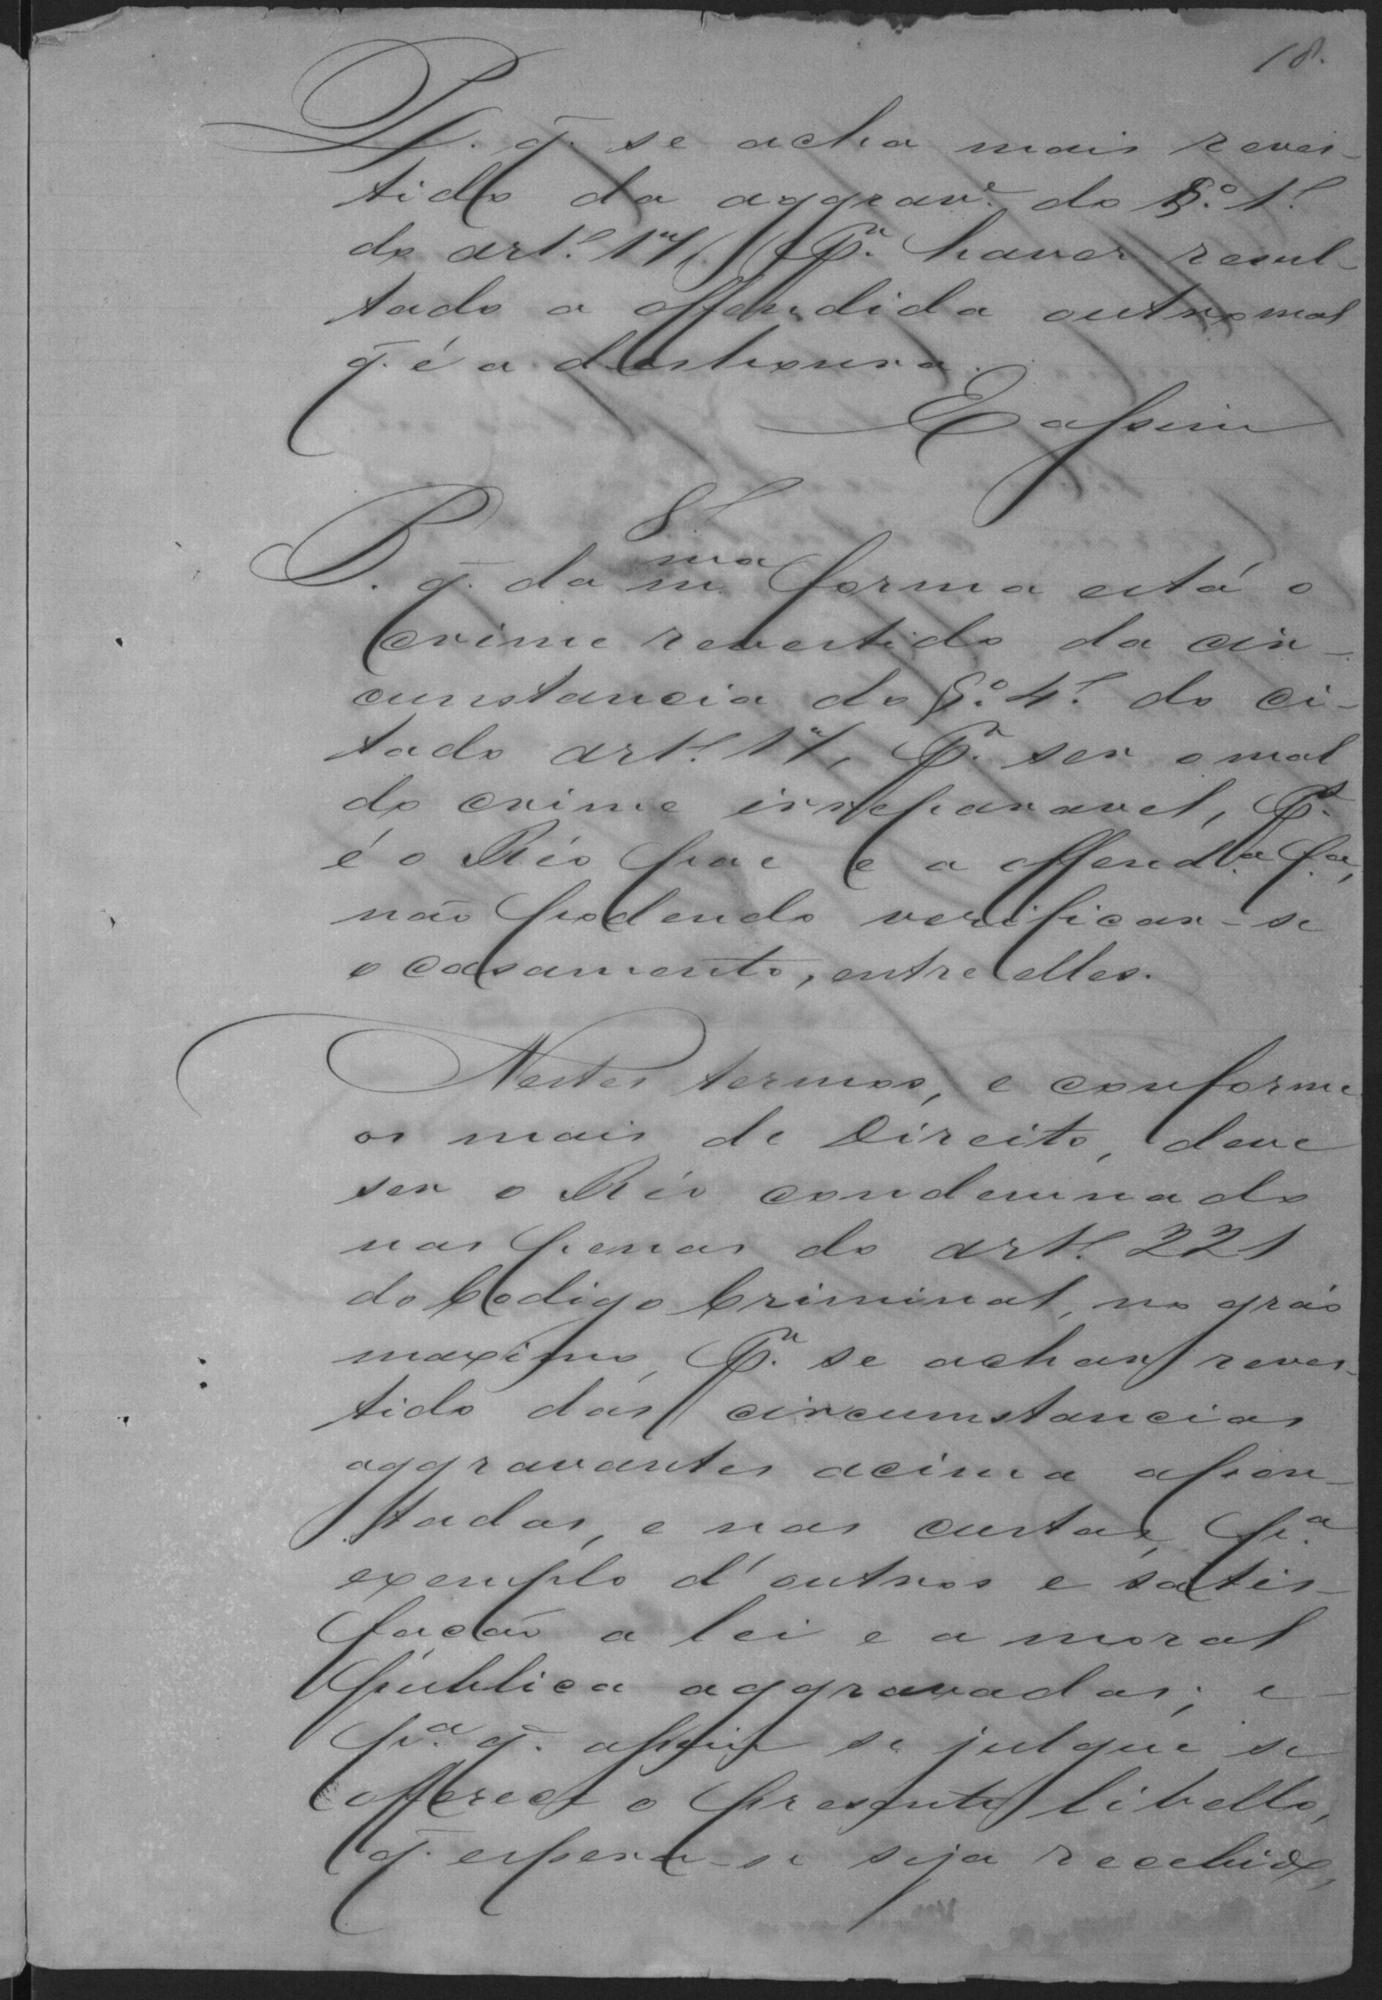 18.
P. q̃. se acha mais reves-
tido da aggrav.e do §.º 1.º
do art.º 17, p.r haver resul-
tado a offendida outro mal
q̃. é a deshonra.
E assim
8.º
P. q̃. da m.ma forma está o
crime revestido da cir-
cunstancia do §.º 4.º do ci-
tado art.º 17, p.r ser o mal
do crime irreparavel, p.s
é o Réo pae e a offend.a f.a,
não podendo verificar-se
o casamento, entre elles.
Nestes termos, e conforme
os mais de Direito, deve
ser o Réo condemnado
nas penas do art.º 221
do Codigo Criminal, no gráo
maximo, p.r se achar reves-
tido das circumstancias
aggravantes acima apon-
tadas, e nas custas, p.a
exemplo d'outros e satis-
fação a lei e a moral
pública aggravadas; e
p.a q̃. assim se julgue se
offerece o presente libello,
q̃. espera-se seja recebido,